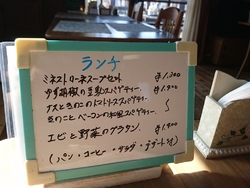 ランチ
ミネストローネスープセット ¥1,200
ゆず胡椒の豆乳スパゲティー ¥1,300
ナスときのこのトマトソーススパゲティー
きのことベーコンの和風スパゲティー 〜
エビと野菜のグラタン ¥1,400
(パン・コーヒー・サラダ・デザート付)